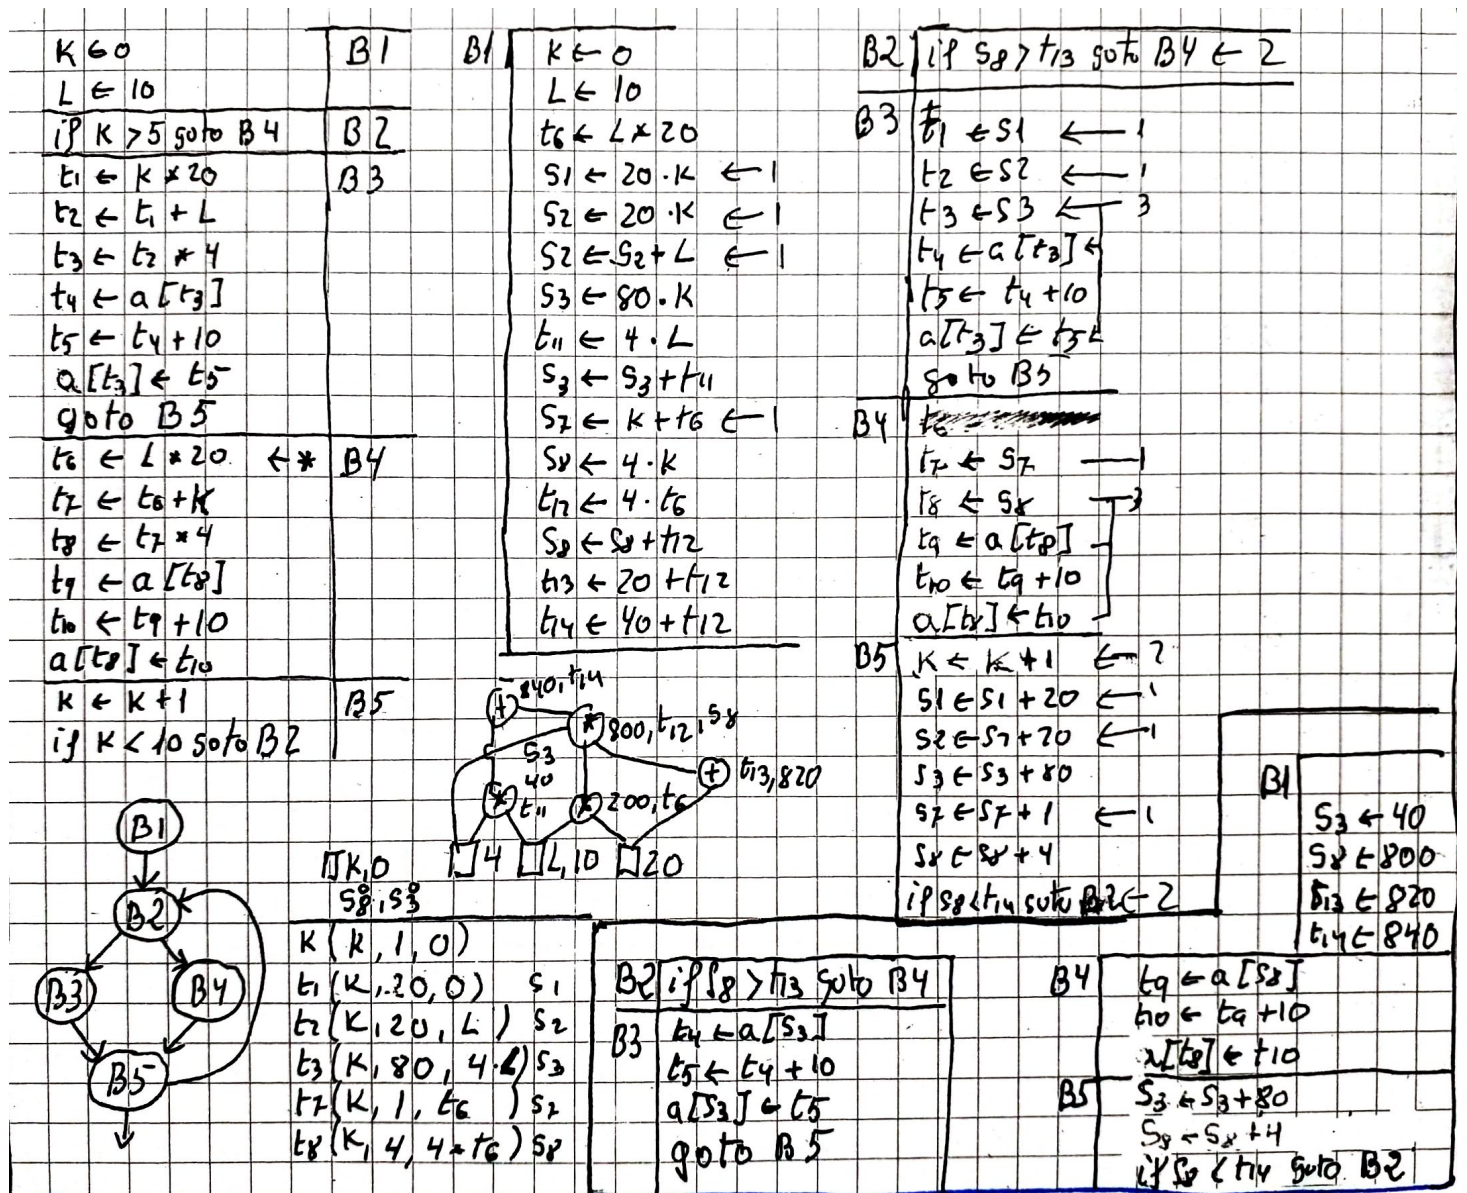 K ← 0 B1
L ← 10
if K > 5 goto B4 B2
t1 ← K * 20 B3
t2 ← t1 + L
t3 ← t2 * 4
t4 ← a[t3]
t5 ← t4 + 10
a[t3] ← t5
goto B5
t6 ← L * 20 ← * B4
t7 ← t6 + K
t8 ← t7 * 4
t9 ← a[t8]
t10 ← t9 + 10
a[t8] ← t10
K ← K + 1 B5
if K < 10 goto B2
B1
B2
B3 B4
B5
B1 K ← 0
L ← 10
t6 ← L * 20
S1 ← 20 · K ← 1
S2 ← 20 · K ← 1
S2 ← S2 + L ← 1
S3 ← 80 · K
t11 ← 4 · L
S3 ← S3 + t11
S7 ← K + t6 ← 1
S8 ← 4 · K
t12 ← 4 · t6
S8 ← S8 + t12
t13 ← 20 + t12
t14 ← 40 + t12
+ 840, t14
* 800, t12, S8
S3
40
t11
*
* 200, t6
+ t13, 820
K, 0
4
L, 10
20
S8°, S3°
K (K, 1, 0)
t1 (K, 20, 0) S1
t2 (K, 20, L) S2
t3 (K, 80, 4·L) S3
t7 (K, 1, t6) S7
t8 (K, 4, 4*t6) S8
B2 if S8 > t13 goto B4 ← 2
B3 t1 ← S1 ← 1
t2 ← S2 ← 1
t3 ← S3 ← 3
t4 ← a[t3] ←
t5 ← t4 + 10
a[t3] ← t5 ←
goto B5
B4
t7 ← S7 — 1
t8 ← S8 — 3
t9 ← a[t8]
t10 ← t9 + 10
a[t8] ← t10
B5 K ← K + 1 ← 2
S1 ← S1 + 20 ← 1
S2 ← S2 + 20 ← 1
S3 ← S3 + 80
S7 ← S7 + 1 ← 1
S8 ← S8 + 4
if S8 < t14 goto B2 ← 2
B1
S3 ← 40
S8 ← 800
t13 ← 820
t14 ← 840
B2 if S8 > t13 goto B4
B3 t4 ← a[S3]
t5 ← t4 + 10
a[S3] ← t5
goto B5
B4 t9 ← a[S8]
t10 ← t9 + 10
a[t8] ← t10
B5 S3 ← S3 + 80
S8 ← S8 + 4
if S8 < t14 goto B2